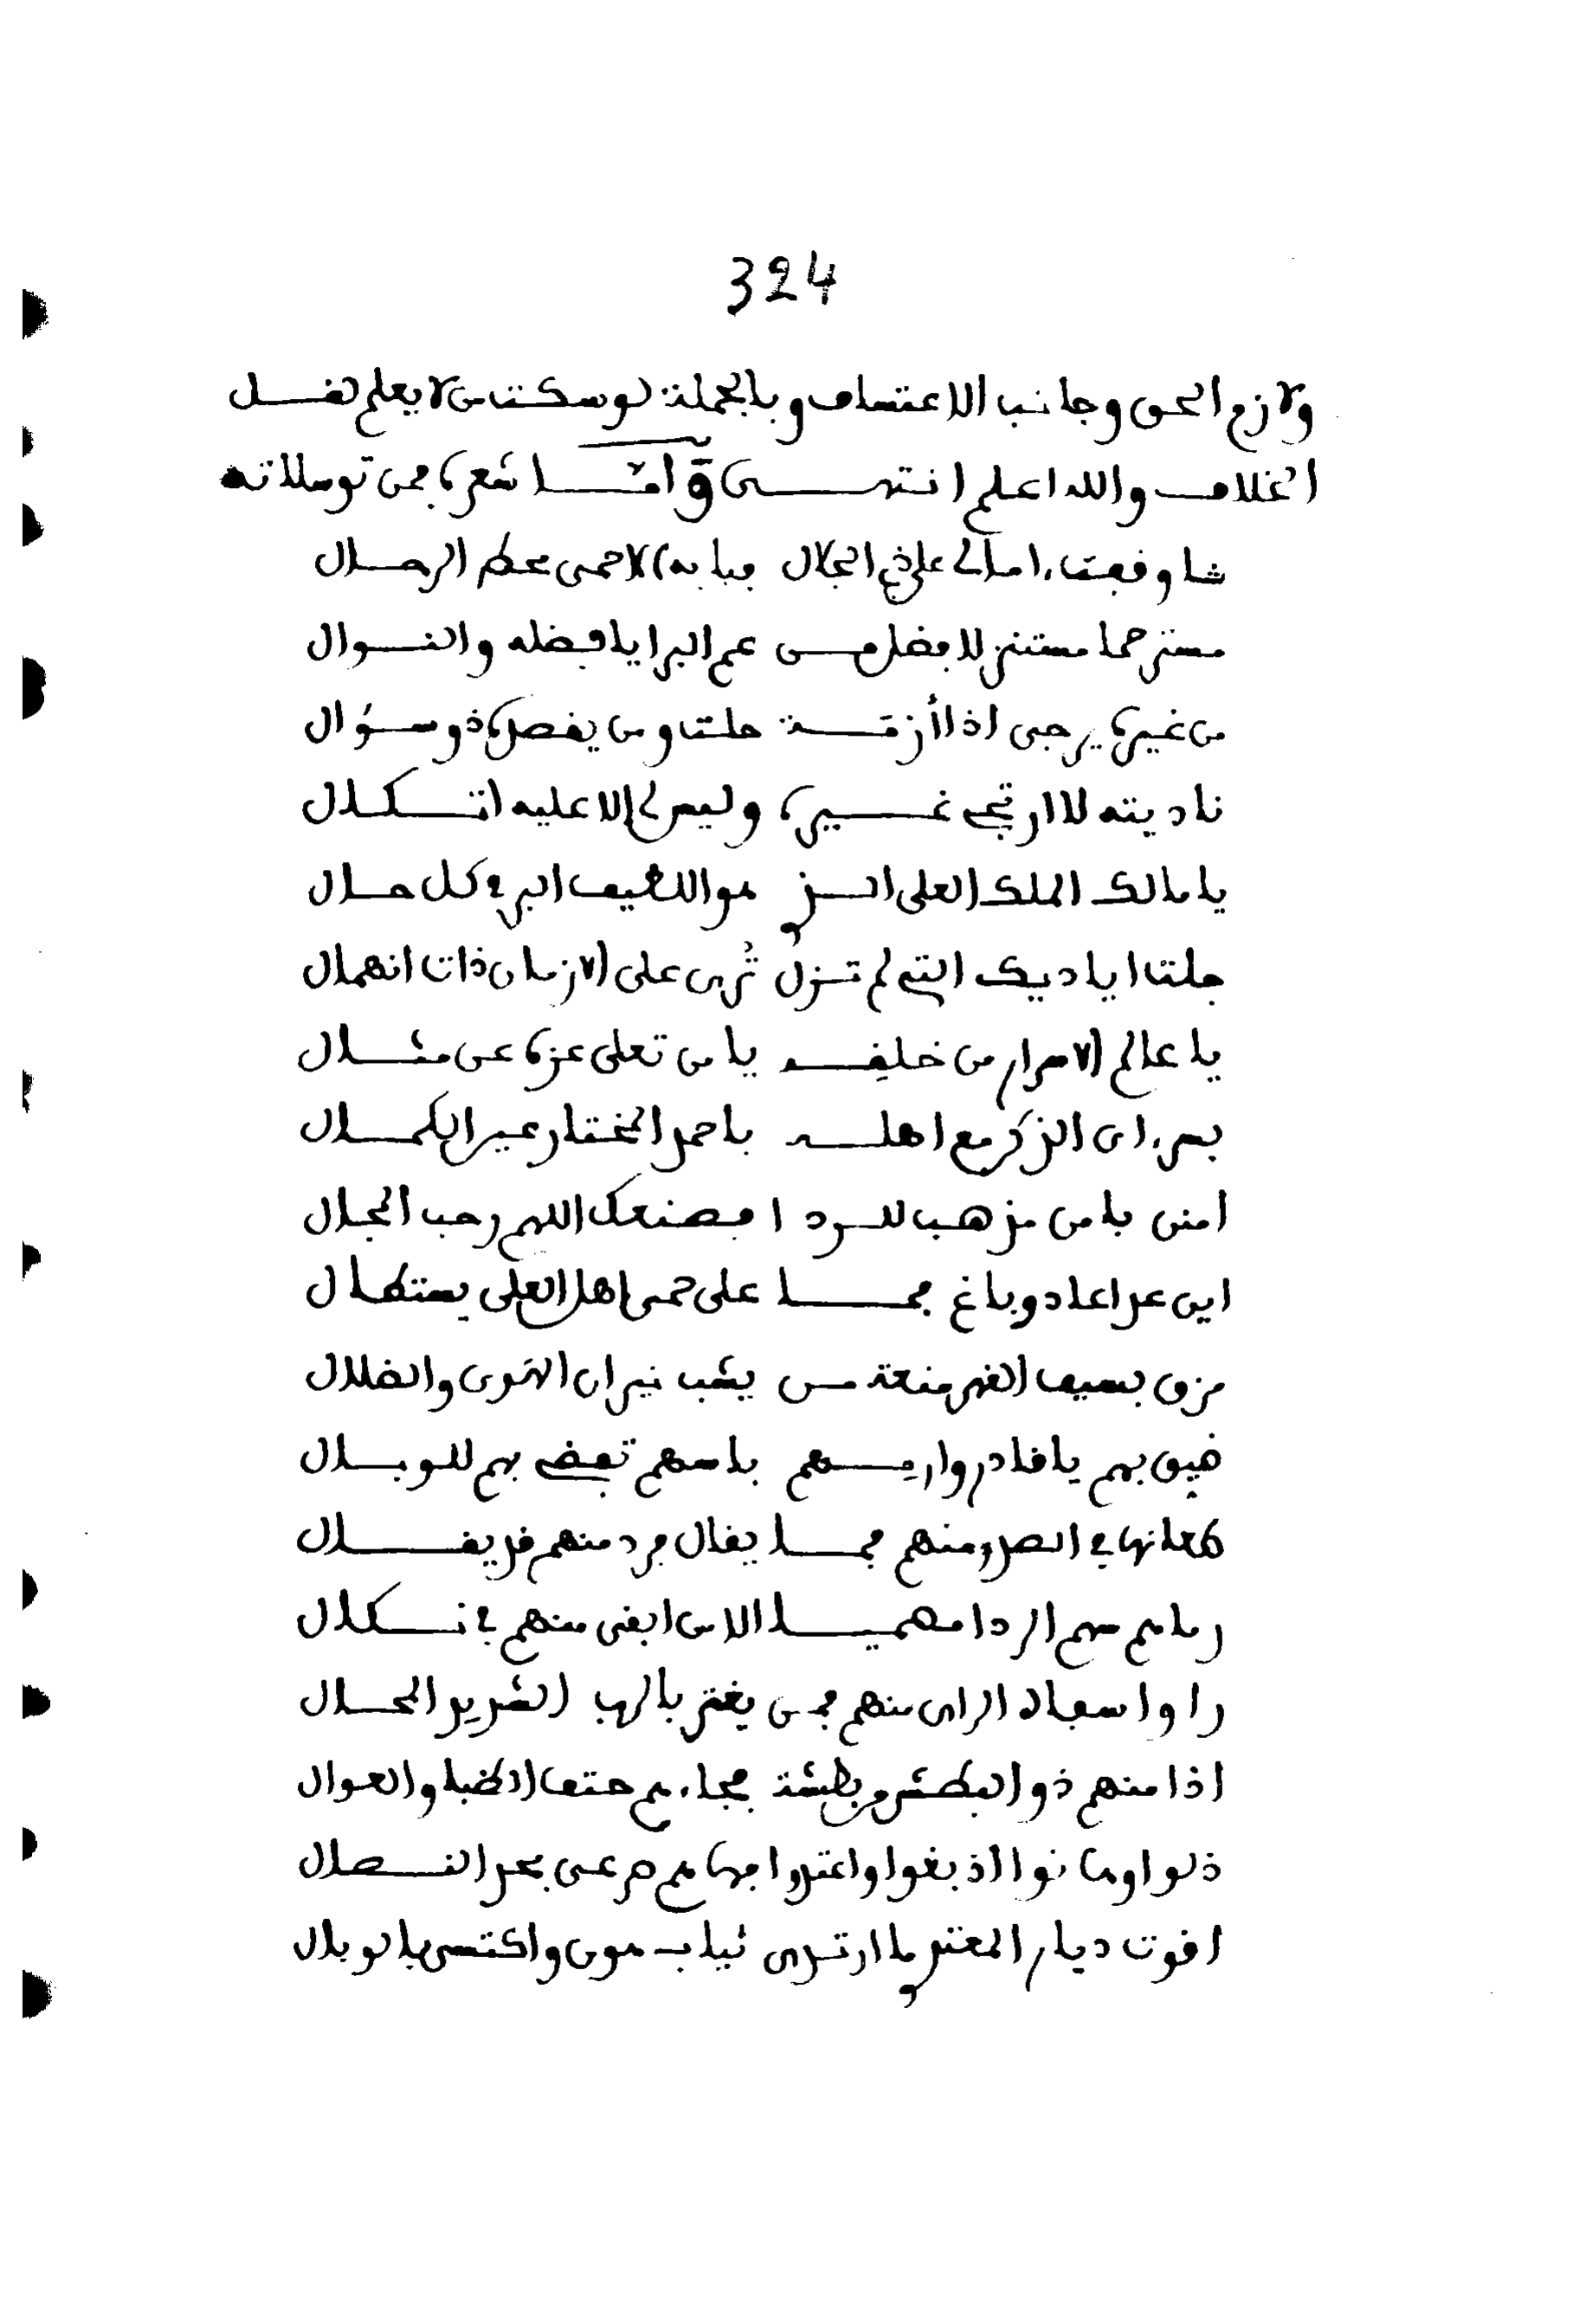 324
ولازم الحق وجانب الاعتساف وبالجملة لو سكت من لا يعلم لقل
الخلاف والله اعلم انتهى وامّا شعره فمن توسلاته
شا وفعت امالى على ذى الجلال ببابه لاحمى محط الرحال
مسترحما مستنزلا فضل من عم البرايا فضله والنوال
من غيره يرجى اذا أزمة حلت ومن يقصده ذو سؤال
ناديته لا ارتجى غيره وليس لى إلا عليه اتكال
يا مالك الملك العلى الذى هو اللطيف البر فى كل حال
جلت اياديك التى لم تزل تُرى على الازمان ذات انهمال
يا عالم الاسرار من خلفه يا من تعلى عزه عن مثال
بسر اى الذكر مع اهله باحمد المختار عين الكمال
امنى يا من مذهب للردا بصنعك اللهم رحب المجال
اين عدا عاد وباغ بما على حمى اهل العلى يستطال
مزق بسيف القهر منعة من يشب نيران الهوى والضلال
ضيق بهم يا قادر وارمهم باسهم تفضى بهم للوبال
طعانها فى الصدر منهم فما يقال فرد منهم قد يقال
رماهم سهم الردا مصميا الا من ابقى منهم فى نكال
را وا سفاه الراى منهم فمن يغتر بالرب الشديد المحال
اذا منهم ذو البطش من بطشة فجاءهم حتف الظبا والعوال
ذلوا وهانوا اذ بغوا واعتدوا فها هم صرعى بحد النصال
اقوت ديار المعتدى ما ارتدى ثياب هون واكتسى بالوبال